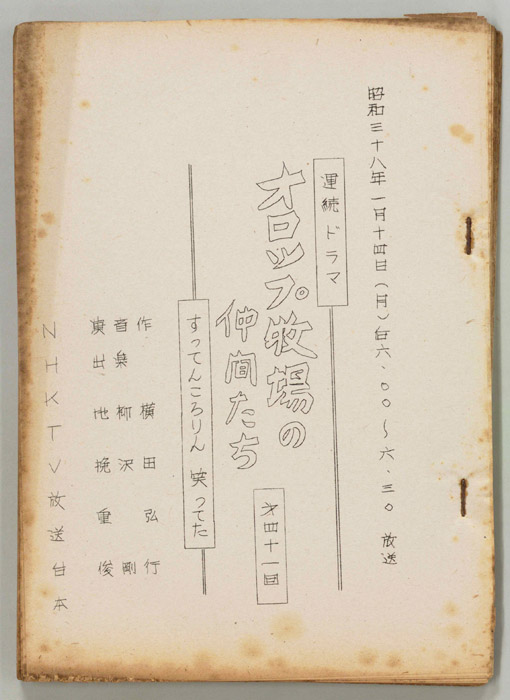 昭和三十八年一月十四日(月)自六.〇〇〜六.三〇 放送
連続ドラマ
オロップ牧場の
仲間たち
第四十一回
すってんころりん 笑ってた
作 横田弘行
音楽 柳沢剛
演出 地挽重俊
NHKTV放送台本